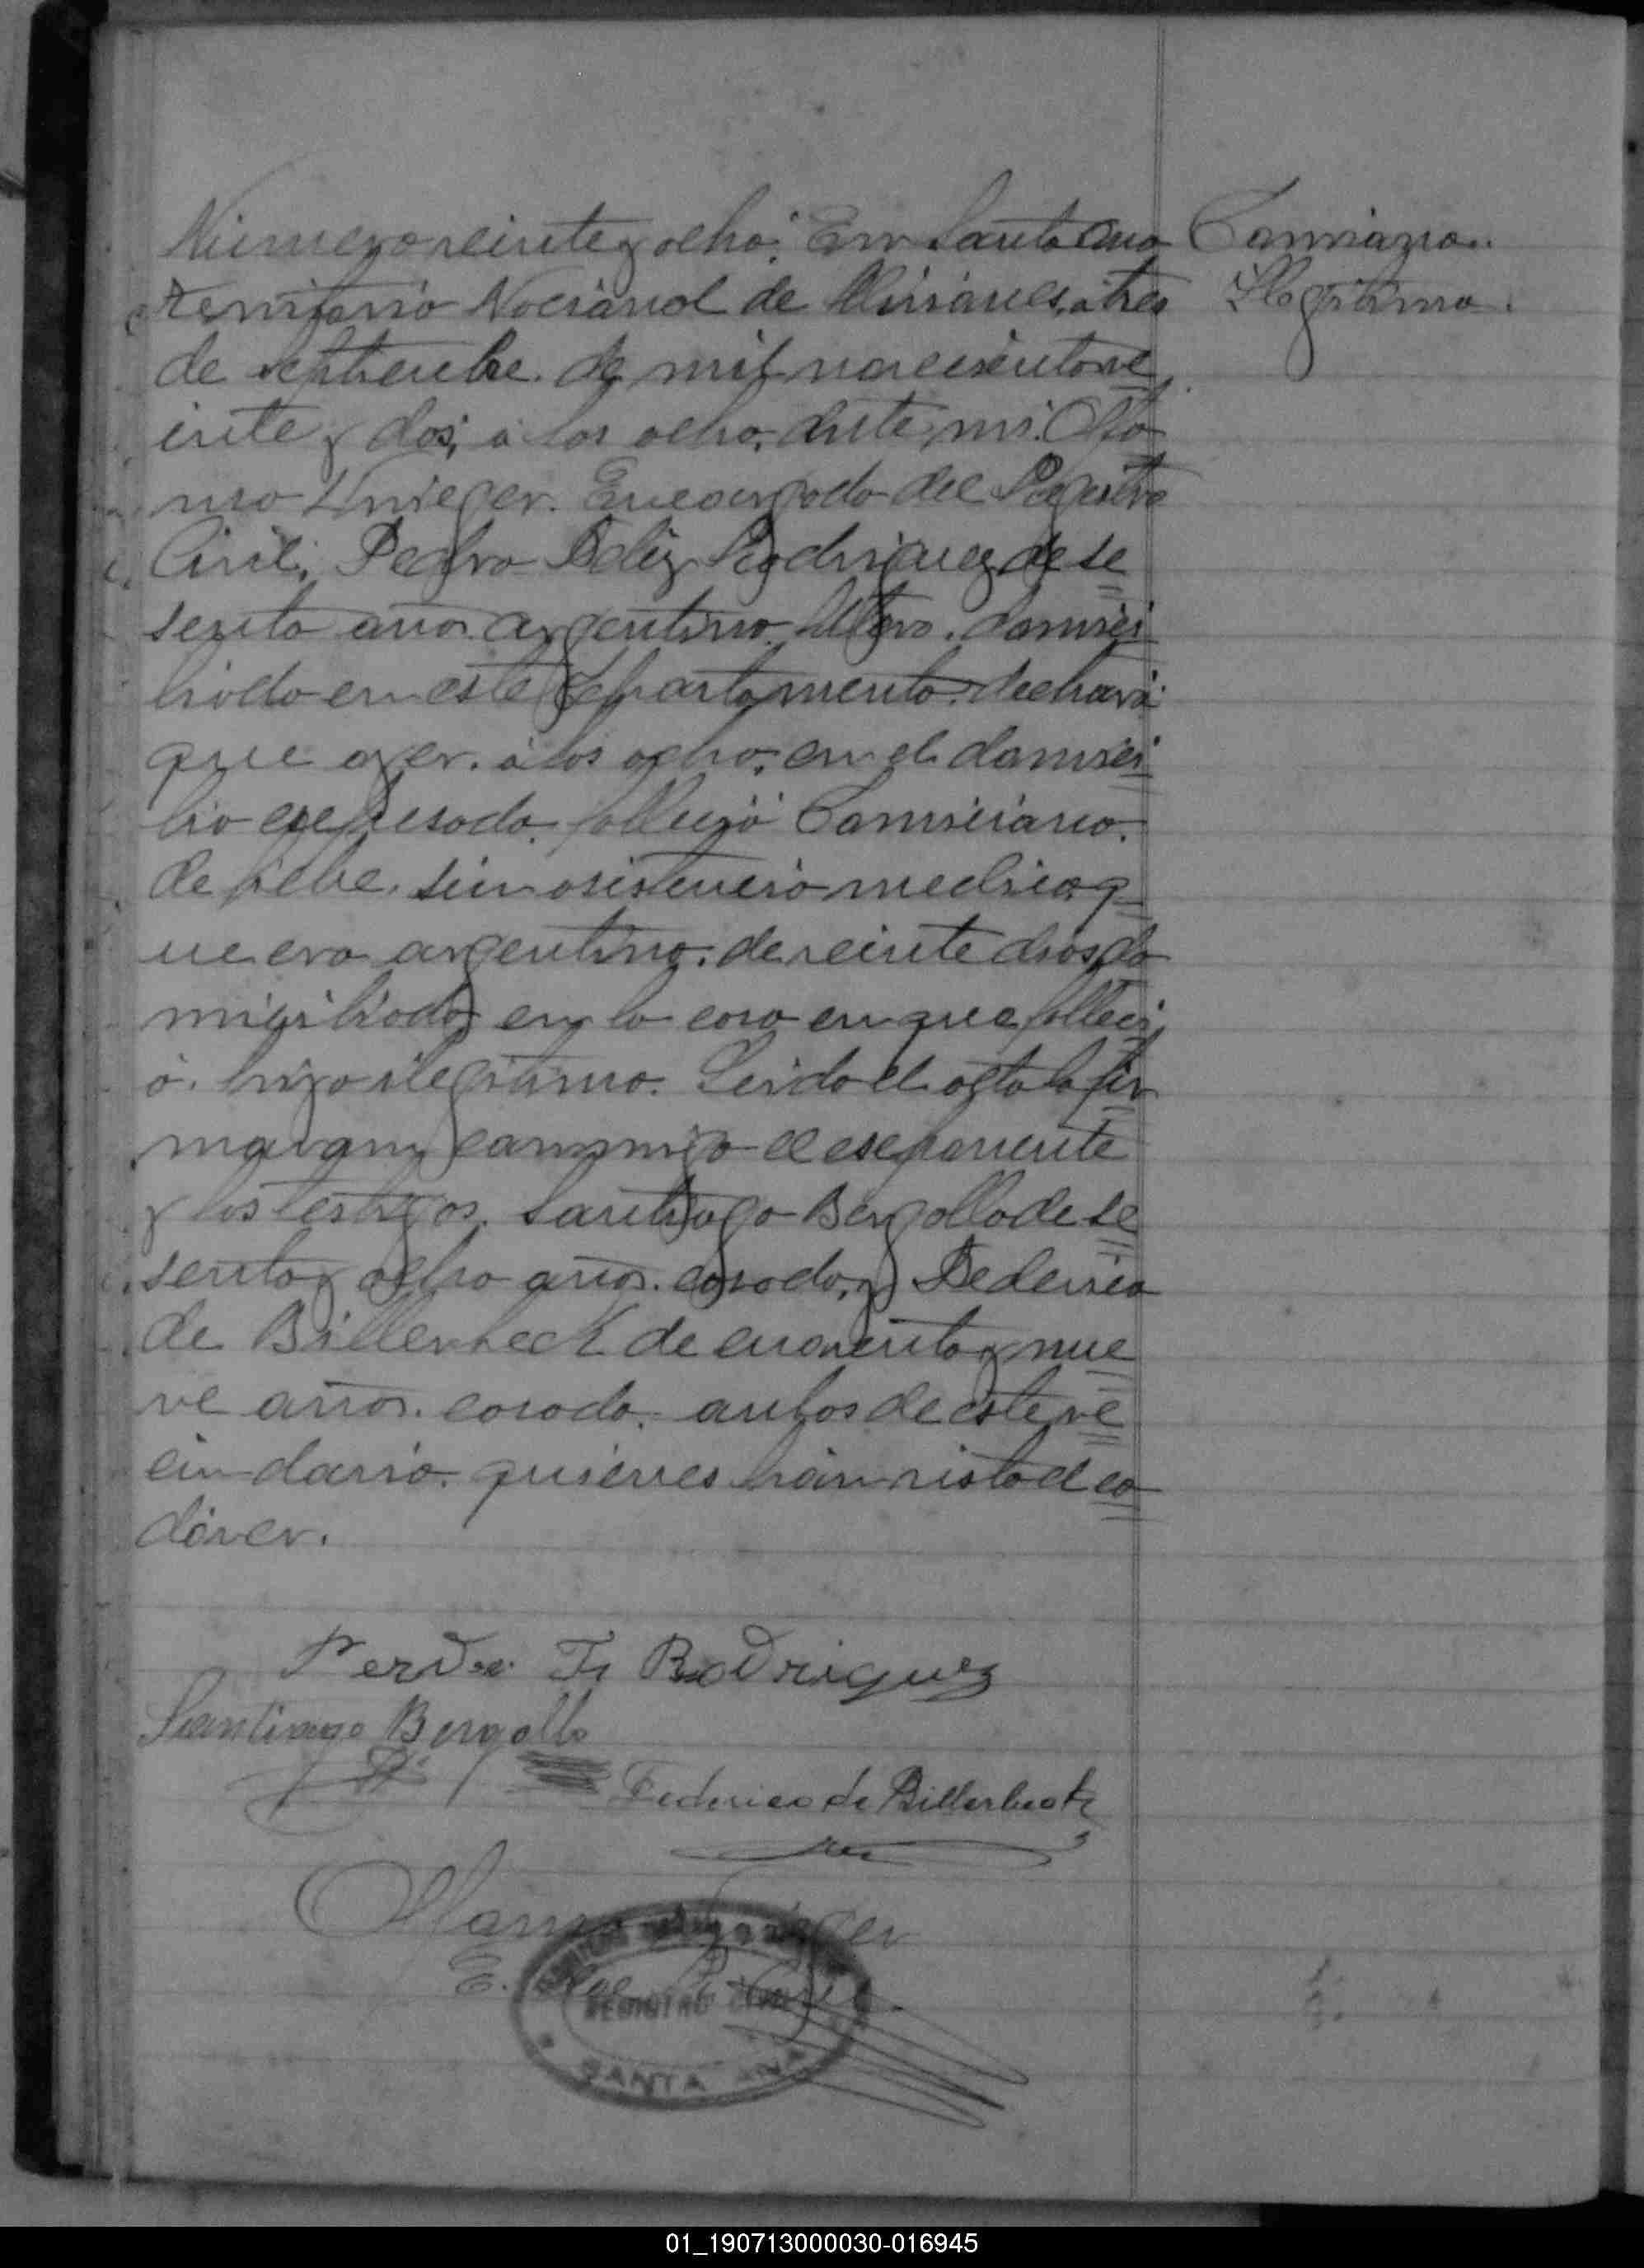 Numero veinte y ocho: En Santa Ana
Territorio Nacional de Misiones, á tres
de septiembre de mil novecientos ve
inte y dos, á las ocho, ante mi Alfo
nso Krieger. Encargado del Registro
Civil; Pedro Feliz Rodriguez de se
senta años argentino soltero, domici
liado en este departamento declaró:
que ayer. á las ocho, en el domici
lio expresado falleció
de fiebre, sin asistencia medica, q
ue era argentino, de veinte dias, do
miciliado en la casa en que falleci
ó. hijo ilegitimo. Leido el acta la fir
maron conmigo el exponente
y los testigos, Santiago Bergallo de se
senta y ocho años. casado, y Federico
de Billerbeck de cuarenta y nue
ve años. casado, ambos de este ve
cindario, quienes han visto el ca
dáver.
Ilegitimo.
Perdro F. Rodriguez
Santiago Bergallo
Federico de Billerbeck
REGISTRO CIVIL
SANTA ANA
01_190713000030-016945